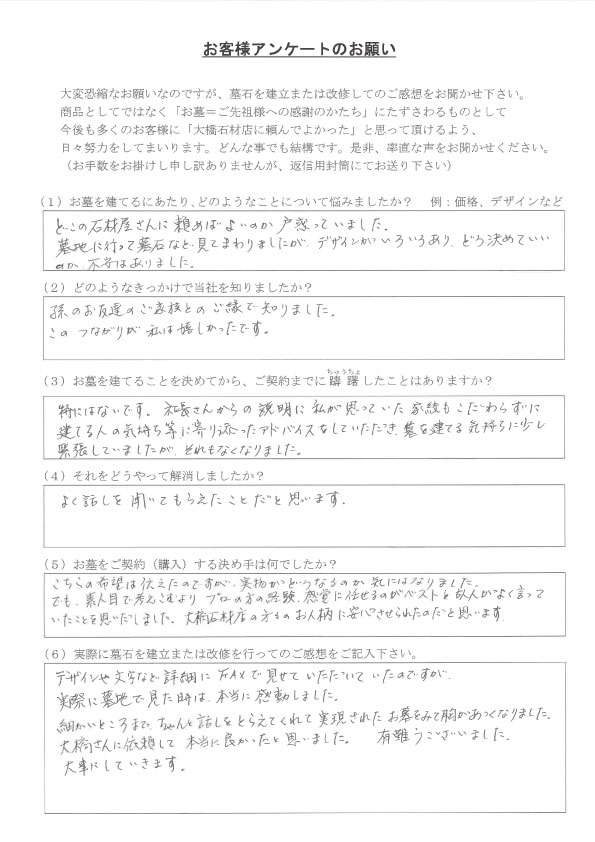 お客様アンケートのお願い
大変恐縮なお願いなのですが、墓石を建立または改修してのご感想をお聞かせ下さい。
商品としてではなく「お墓＝ご先祖様への感謝のかたち」にたずさわるものとして
今後も多くのお客様に「大橋石材店に頼んでよかった」と思って頂けるよう、
日々努力をしてまいります。どんな事でも結構です。是非、率直な声をお聞かせください。
（お手数をお掛けし申し訳ありませんが、返信用封筒にてお送り下さい）
（1）お墓を建てるにあたり、どのようなことについて悩みましたか？　例：価格、デザインなど
どこの石材屋さんに頼めばよいのか戸惑っていました。
墓地に行って墓石など見てまわりましたが、デザインがいろいろあり、どう決めていい
のか、不安はありました。
（2）どのようなきっかけで当社を知りましたか？
孫のお友達のご家族とのご縁で知りました。
このつながりが私は嬉しかったです。
ちゅうちょ
（3）お墓を建てることを決めてから、ご契約までに躊躇したことはありますか？
特にはないです。社長さんからの説明に私が思っていた家紋もこだわらずに
建てる人の気持ち等に寄り添ったアドバイスをしていただき、墓を建てる気持ちに少し
緊張していましたが、それもなくなりました。
（4）それをどうやって解消しましたか？
よく話しを聞いてもらえたことだと思います。
（5）お墓をご契約（購入）する決め手は何でしたか？
こちらの希望は伝えたのですが、実物がどうなるのか気にはなりました。
でも、素人目で考えこむよりプロの方の経験、感覚に任せるのがベストと故人がよく言って
いたことを思いだしました。大橋石材店の方々のお人柄に安心させられたのだと思います。
（6）実際に墓石を建立または改修を行ってのご感想をご記入下さい。
デザインや文字など詳細にFAXで見せていただいていたのですが、
実際に墓地で見た時は、本当に感動しました。
細かいところまで、ちゃんと話しをとらえてくれて実現されたお墓をみて胸があつくなりました。
大橋さんに依頼して本当に良かったと思いました。　有難うございました。
大事にしていきます。